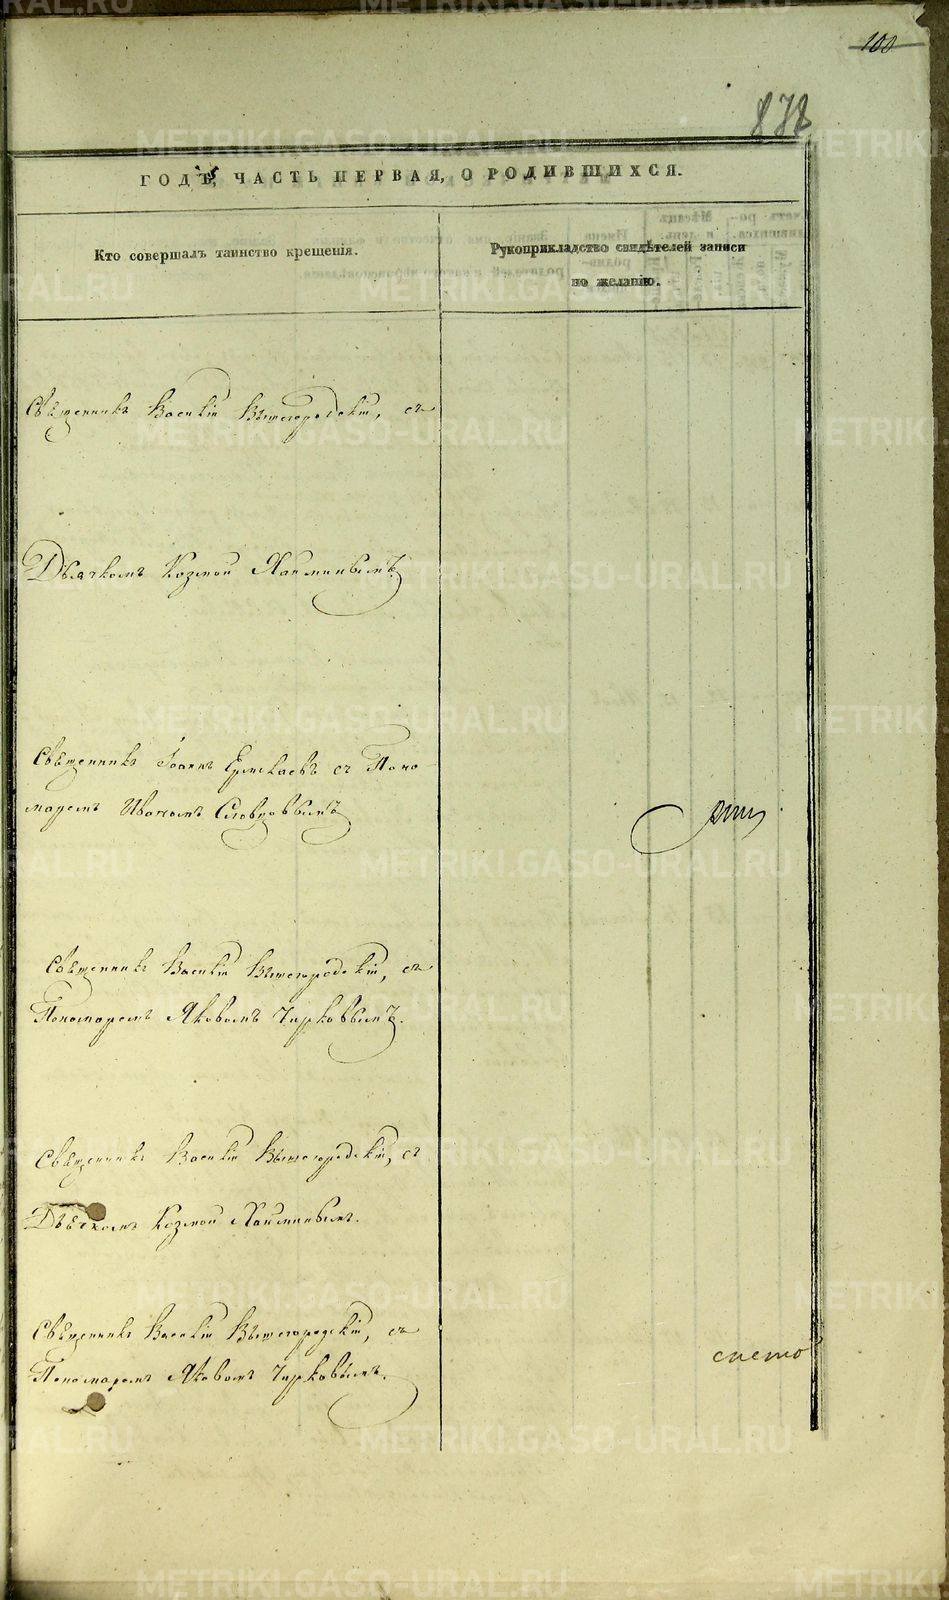 100
878
ГОДЪ, ЧАСТЬ ПЕРВАЯ, О РОДИВШИХСЯ.
Кто совершалъ таинство крещенія.
Рукоприкладство свидѣтелей записи
по желанію.
Священникъ Василій Вышегородскій, съ
Дьячкомъ Козмой
Священникъ Іоаннъ Ермолаевъ съ Поно
маремъ Иваномъ Словцовымъ
Священникъ Василій Вышегородскій, съ
Пономаремъ Яковомъ Чирковымъ.
Священникъ Василій Вышегородскій, съ
Дьячкомъ Козмой
Священникъ Василій Вышегородскій, съ
Пономаремъ Яковомъ Чирковымъ.
METRIKI.GASO-URAL.RU